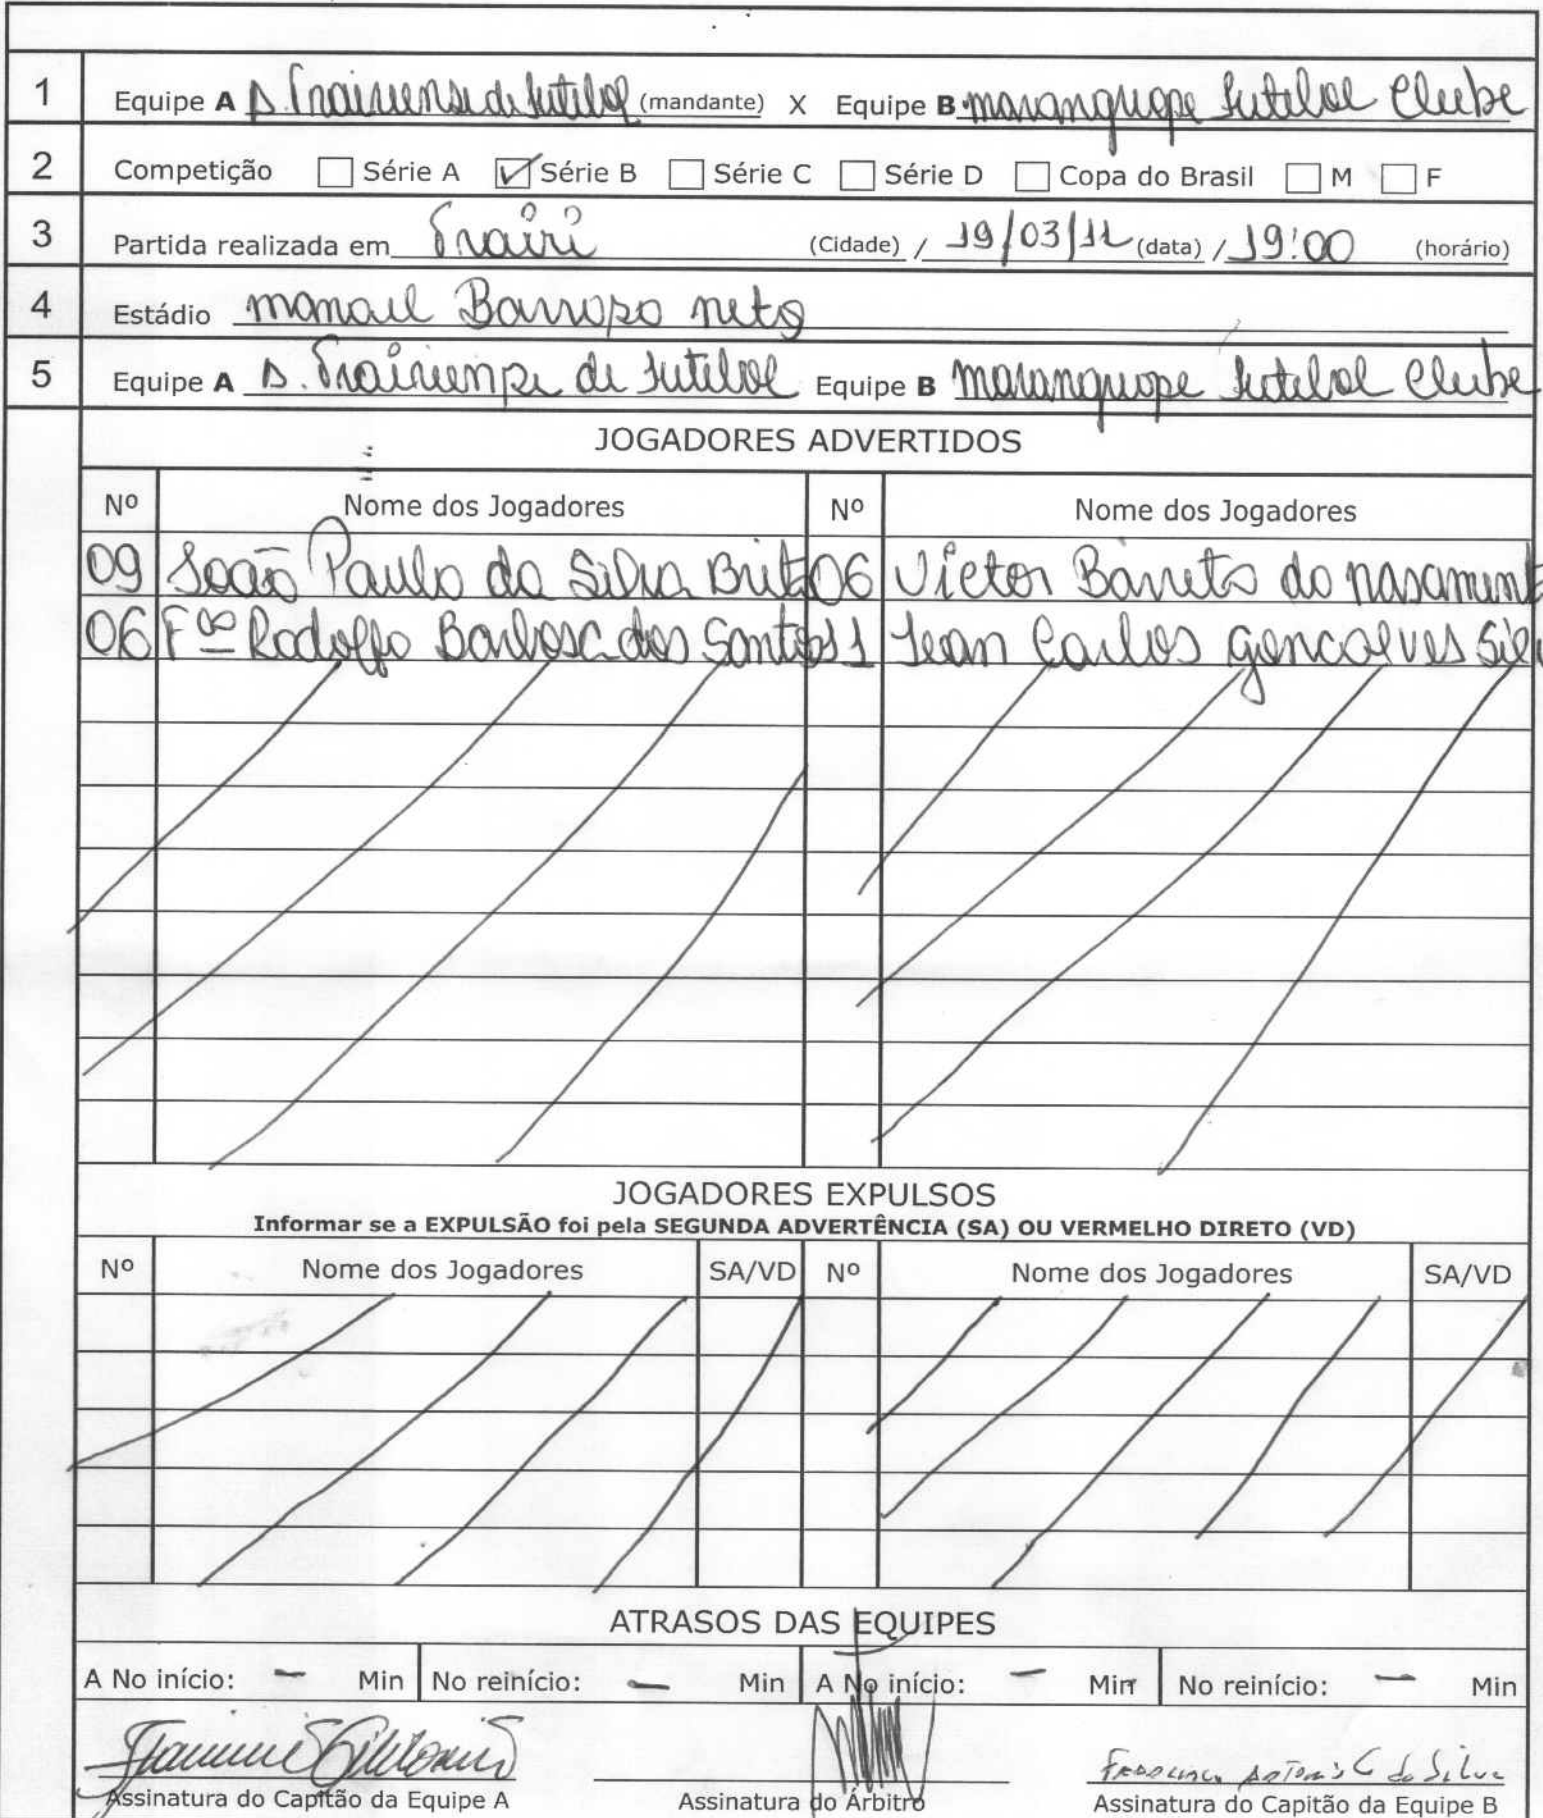 1 Equipe A A. Trairiense de Futebol (mandante) X Equipe B Maranguape Futebol Clube
2 Competição Série A Série B Série C Série D Copa do Brasil M F
3 Partida realizada em Trairi (Cidade) / 19/03/11 (data) / 19:00 (horário)
4 Estádio manoel Barroso neto
5 Equipe A A. Trairiense de Futebol Equipe B Maranguape Futebol Clube
JOGADORES ADVERTIDOS
Nº Nome dos Jogadores Nº Nome dos Jogadores
09 João Paulo da Silva Brito 06 Victor Barreto do nascimento
06 Fco Rodolfo Barbosa dos Santos 11 Jean Carlos goncalves Silv
JOGADORES EXPULSOS
Informar se a EXPULSÃO foi pela SEGUNDA ADVERTÊNCIA (SA) OU VERMELHO DIRETO (VD)
Nº Nome dos Jogadores SA/VD Nº Nome dos Jogadores SA/VD
ATRASOS DAS EQUIPES
A No início: – Min No reinício: – Min A No início: – Min No reinício: – Min
da Silva
Assinatura do Capitão da Equipe A Assinatura do Árbitro Assinatura do Capitão da Equipe B